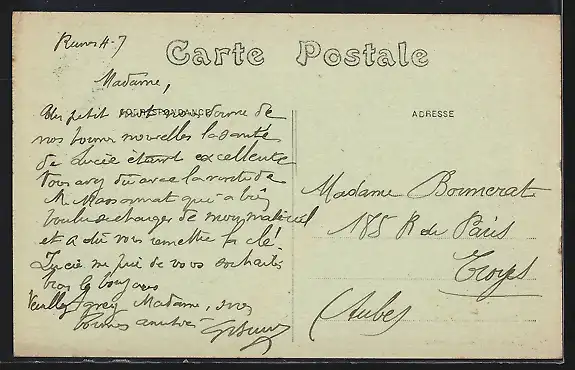 Carte Postale
CORRESPONDANCE
ADRESSE
Madame,
Un petit mot vous donne de
nos bonnes nouvelles la santé
de Lucie étant excellente
Vous avez dû avec la visite de
M. qui a bien
voulu se charger de mon matériel
et a dû vous remettre la clé.
Lucie me prie de vous souhaiter
bien le bonjour
Veuillez Agréez Madame, mes
bonnes amitiés
Madame Bonnerat
185 R de Paris
Troyes
(Aube)